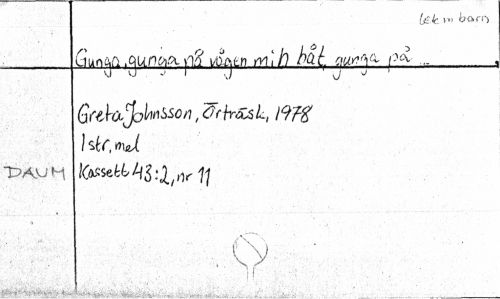 lek m barn
Gunga, gunga på vågen min båt, gunga på ...
Greta Johnsson, Örträsk, 1978
1 str, mel
DAUM Kassett 43:2, nr 11